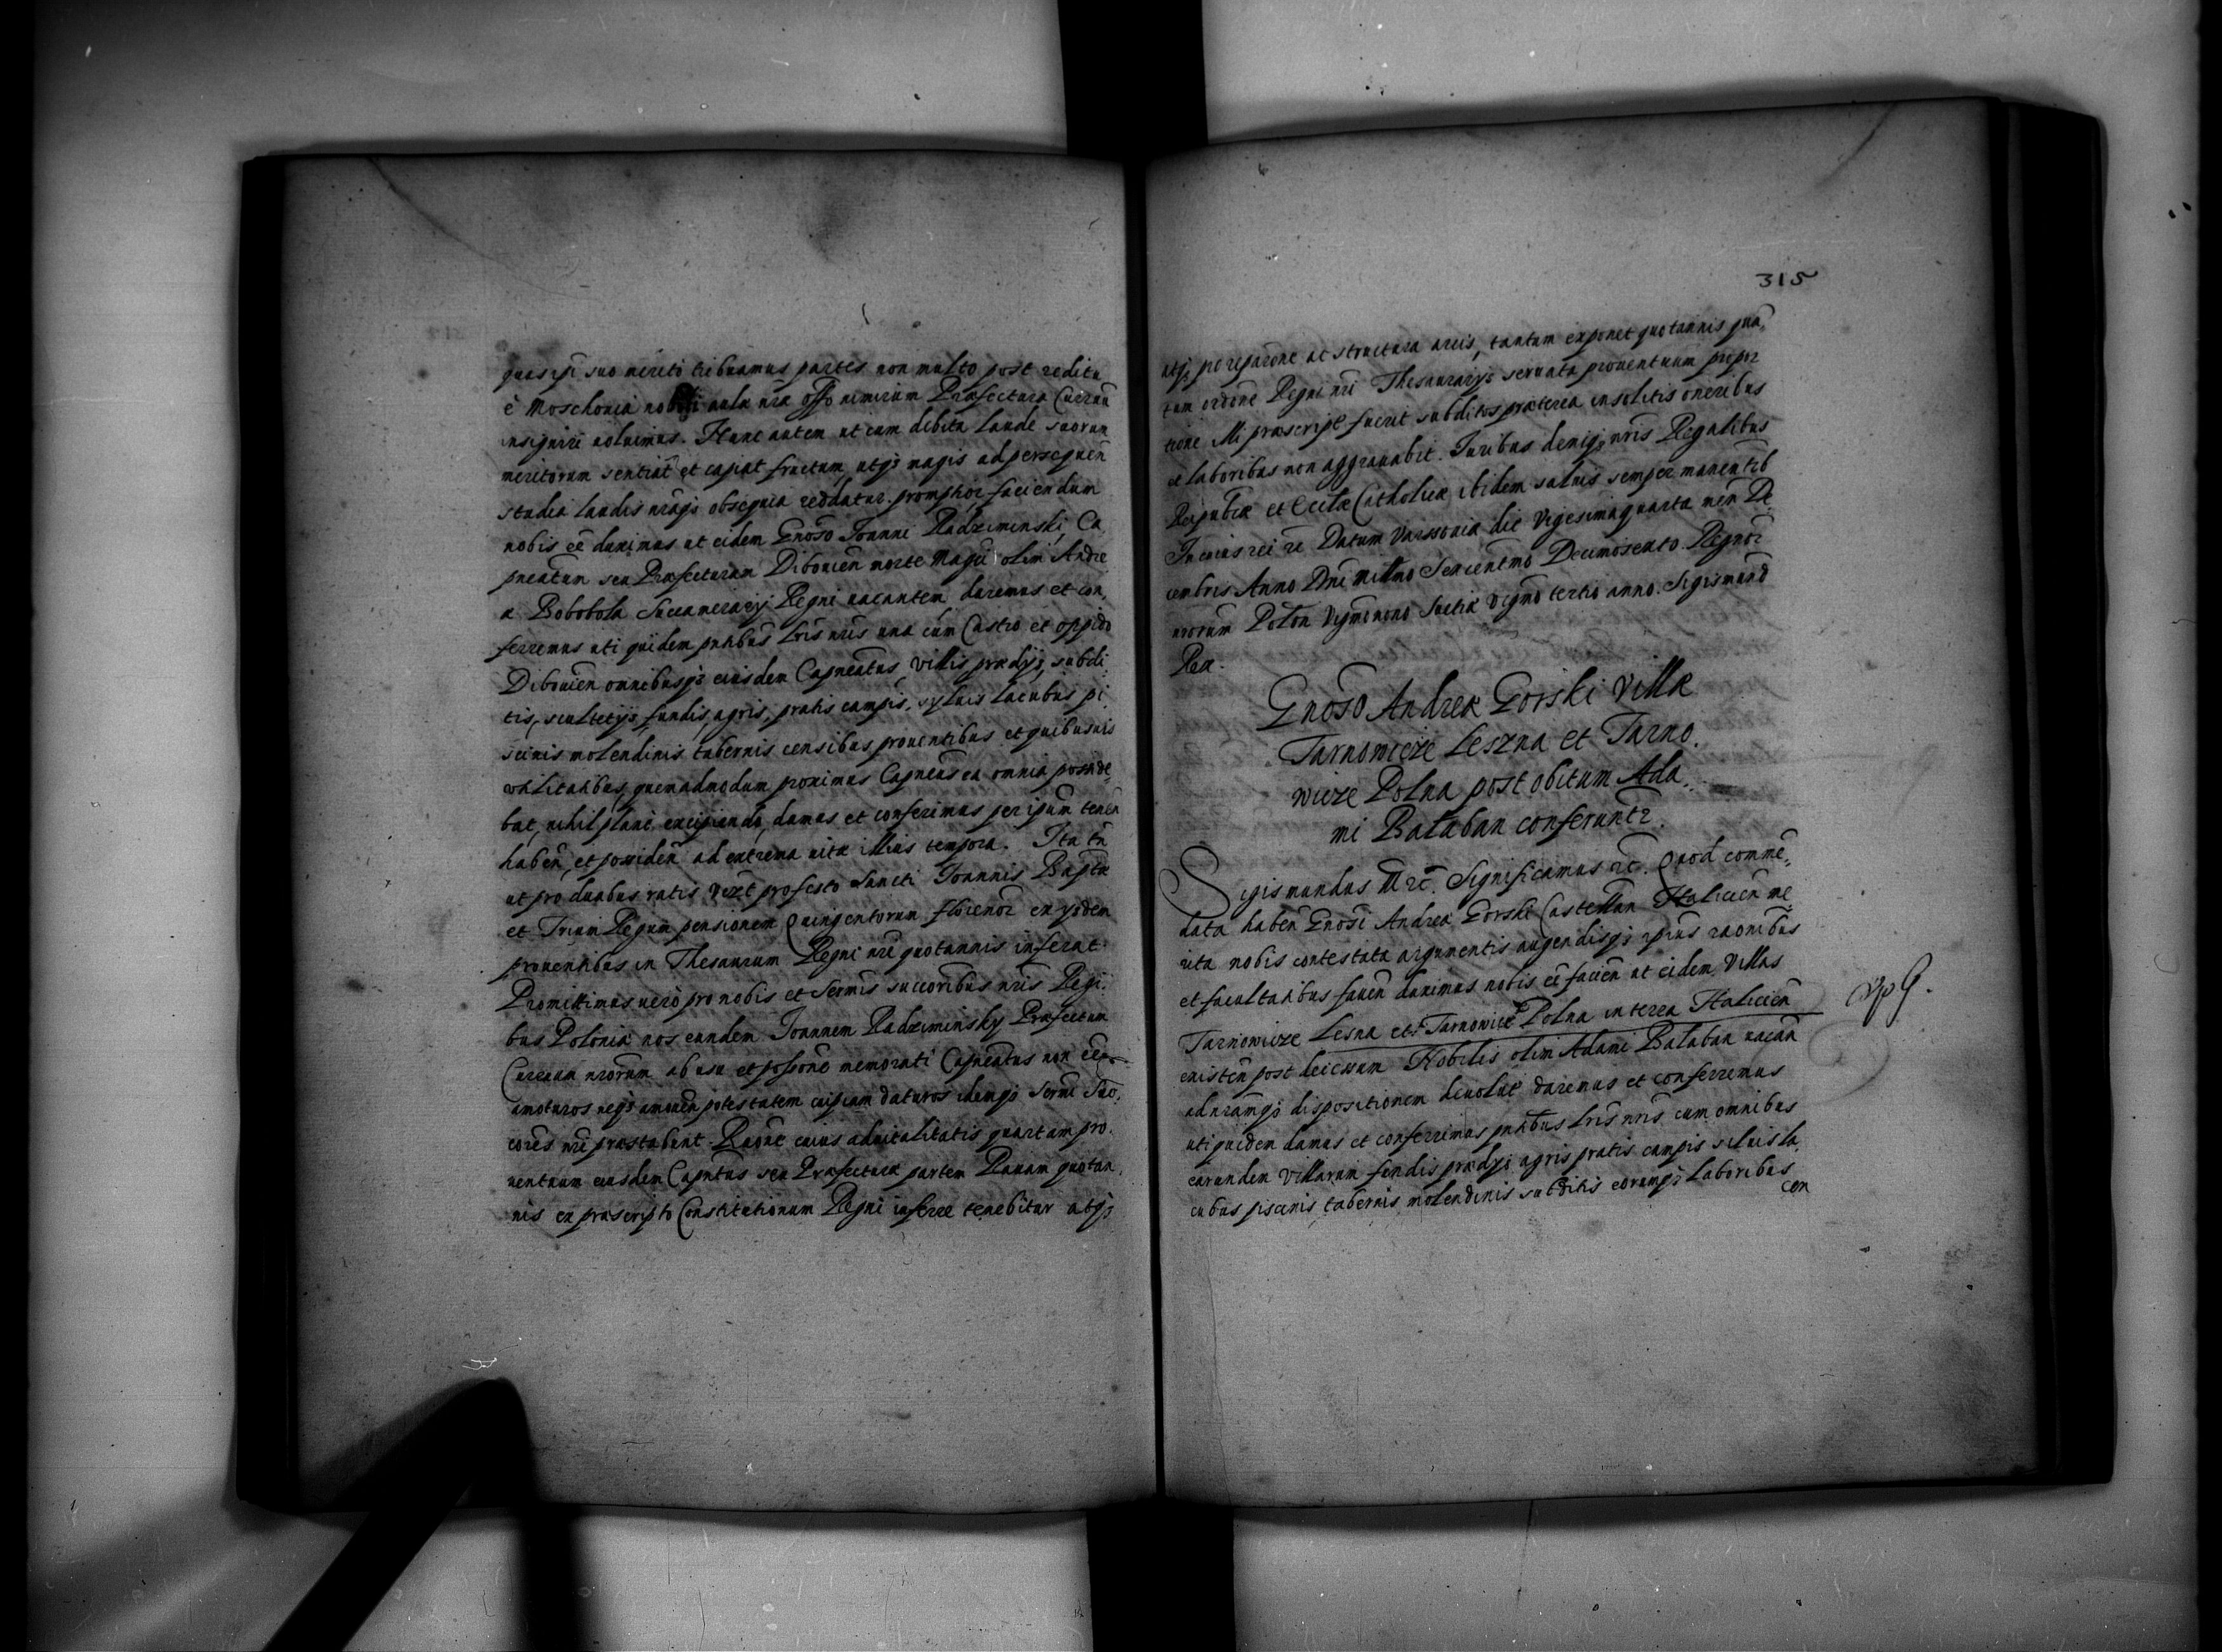 quas ipi suo merito tribuamus partes non multo post reditu
è Moschouia nobili aulæ nræ offo nimirum Præfectura Curruũ
insignire uoluimus. Hunc autem ut cum debita laude suorum
meritorum sentiat et capiat fructum, utq3 magis ad persequen̄
studia laudis nraq3 obsequia reddatur promptior faciendum
nobis eē duximus ut eidem Gnoso Ioanni Radziminski, Ca,
pneatum seu Præfecturam Dibouien̄ morte Magci olim Andre,
æ Bobobola Succamerarij Regni uacantem daremus et con,
ferremus uti quidem pntibus lris nris una cum Castro et oppido
Dibouien̄ omnibusq3 eiusdem Capneatus, villis prædijs, subdi,
tis, scultetijs, fundis, agris, pratis campis, syluis lacubus pi,
scinis molendinis tabernis censibus prouentibus et quibusuis
vtilitatibus, quemadmodum proximus Capneus ea omnia posside,
bat, nihil planè excipiendo, damus et conferimus per ipsum tenen̄
haben̄, et possiden̄ ad extrema uitæ illius tempora. Ita tn̄
ut pro duabus ratis vizt pro festo Sancti Ioannis Baptæ
et Trium Regum pensionem Quingentorum florenor ex ijsdem
prouentibus in Thesaurum Regni nri quotannis inferat.
Promittimus uerò pro nobis et Sermis succoribus nris Regi,
bus Poloniæ nos eundem Ioannem Radziminsky Præfectum
Curruum nrorum ab usu et possone memorati Capneatus non eē
amoturos neq3 amouen̄ potestatem cuipiam daturos idemq3 Sermi Suc,
cores nri præstabunt. Raōne cuius aduitalitatis quartam pro,
uentuum eiusdem Capntus seu Præfecturæ partem Rauam quotan,
nis ex præscripto Constitutionum Regni inferre tenebitur atq3
315
atq3 pro reparōne ac structura arcis, tantum exponet quotannis quā,
tum ordōne Regni nri Thesaurarijs seruata prouentuum propor
tione illi præscript fuerit subditos præterea insolitis oneribus
et laboribus non aggrauabit. Iuribus deniq3 nris Regalibus
Reipublcæ et Ecclæ Catholicæ ibidem saluis semper manentib
In cuius rei &c Datum Varssouiæ die Vigesimaquarta men̄ De,
cembris Anno Dni Millmo Sexcentmo Decimosexto. Regnor
nrorum Polon̄ Vigmonono Suetiæ Vigmo tertio anno. Sigismund
Rex.
Gnoso Andreæ Gorski Villæ
Tarnowicze Leszna et Tarno,
wicze Polna post obitum Ada,
mi Balaban conferuntr.
Sigismundus III &c. Significamus &c. Quod commē,
data haben̄ Gnosi Andreæ Gorski Castellan̄ Halicien̄ me,
rita nobis contestata argumentis augendisq3 ipius raonibus
et facultatibus fauen̄ duximus nobis eē facien̄ ut eidem Villas
Tarnowicze Lesna et Tarnowicze Polna in terra Halicien̄
existen̄ post decessum Nobilis olim Adami Balaban uacan̄
ad nramq3 dispositionem deuolut daremus et conferremus
uti quidem damus et conferrimus pntibus lris nris cum omnibus
earundem villarum fundis prædijs agris pratis campis siluis la,
cubus piscinis tabernis molendinis subditis eorumq3 laboribus
cen